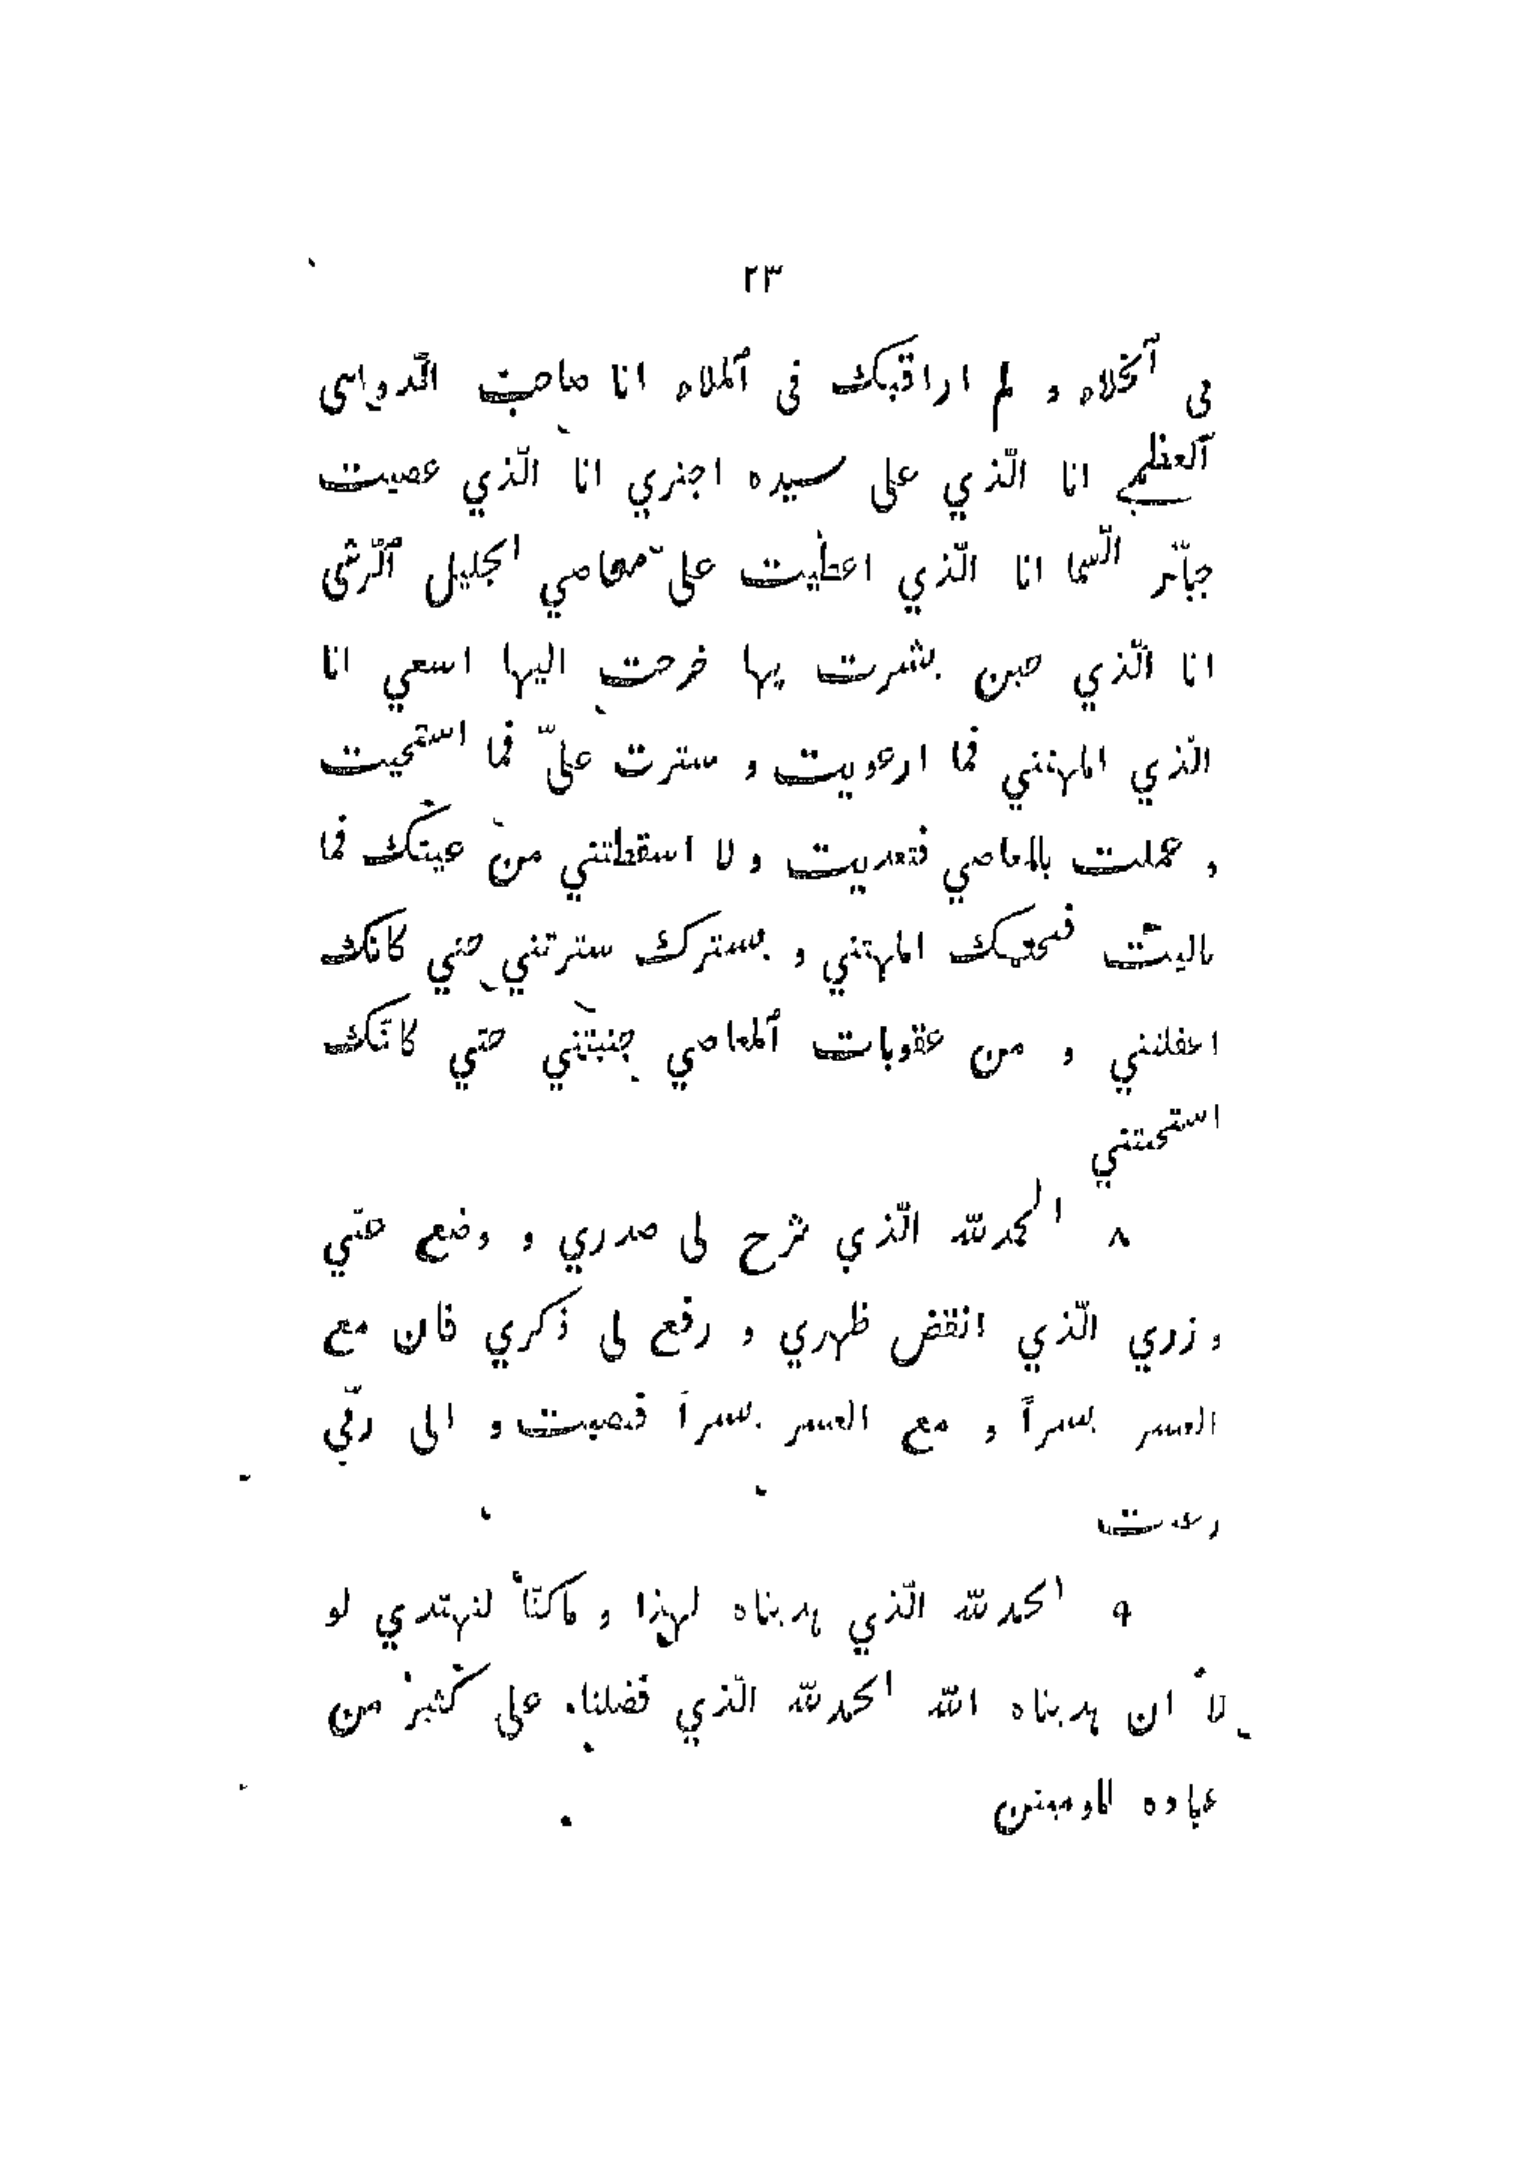 ٢٣
في ٱلخلاه و لم اراقبك فى ٱلملاه انا صاحب الّدواسى
ٱلعظمي انا الّذي على سيده اجتري انا الّذي عصيت
جبّار السّما انا الّذي اعطيت على معاصي الجليل ٱلرّشى
انا الّذي حين بشرت بها خرجت اليها اسعي انا
الّذي امهلتني فما ارعويت و سترت عليّ فما استحيت
و عملت بالمعاصي فتعديت و لا اسقطتني من عينك فما
باليت فبحلمك امهلتني و بسترك سترتني حتي كانك
اغفلتني و من عقوبات ٱلمعاصي جنبتني حتي كانّك
استحيتني
٨ الحمد لله الّذي شرح لى صدري و وضع عنّي
وزري الّذي انقض ظهري و رفع لى ذكري فان مع
العسر يسراً و مع العسر يسراً فنصبت و الى ربّي
رغبت
٩ الحمد لله الّذي هديناه لهذا و ما كنّا لنهتدي لو
لا ان هديناه الله الحمد لله الّذي فضلنا على كثير من
عباده المومنين